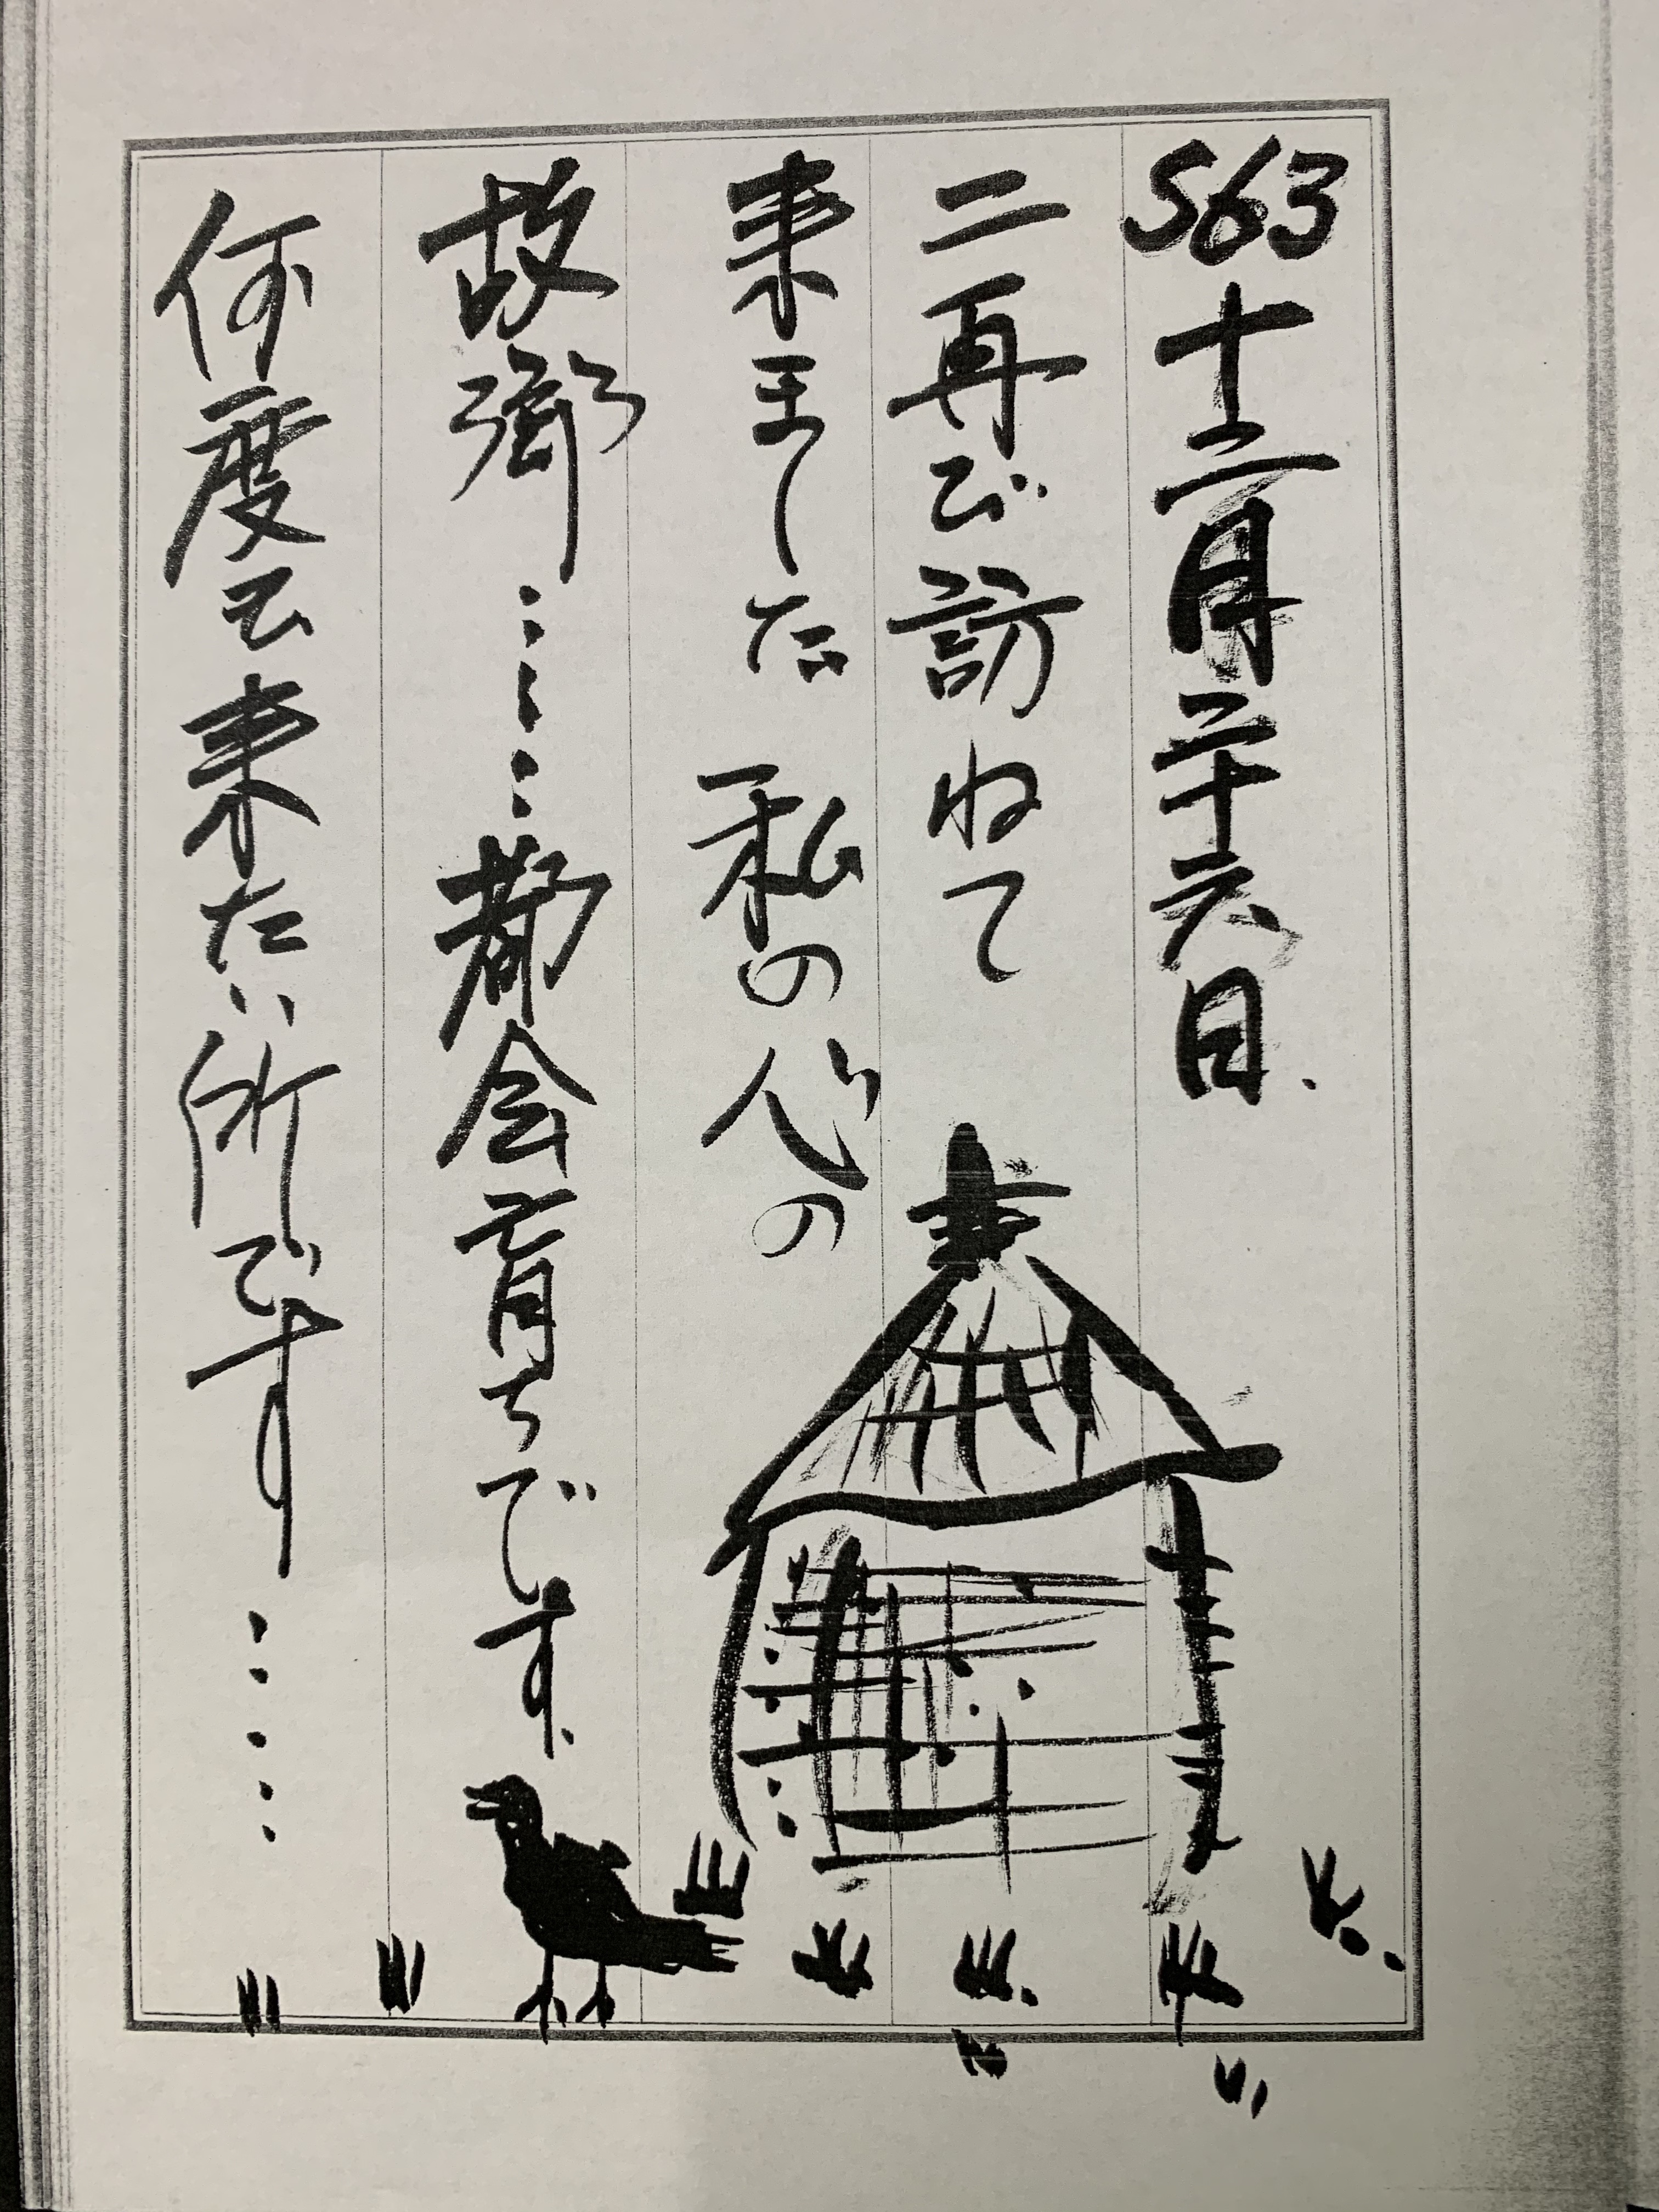 S63十二月二十六日.
二再び訪ねて
来ました 私の心の
故郷………都会育ちです.
何度も来たい所です……